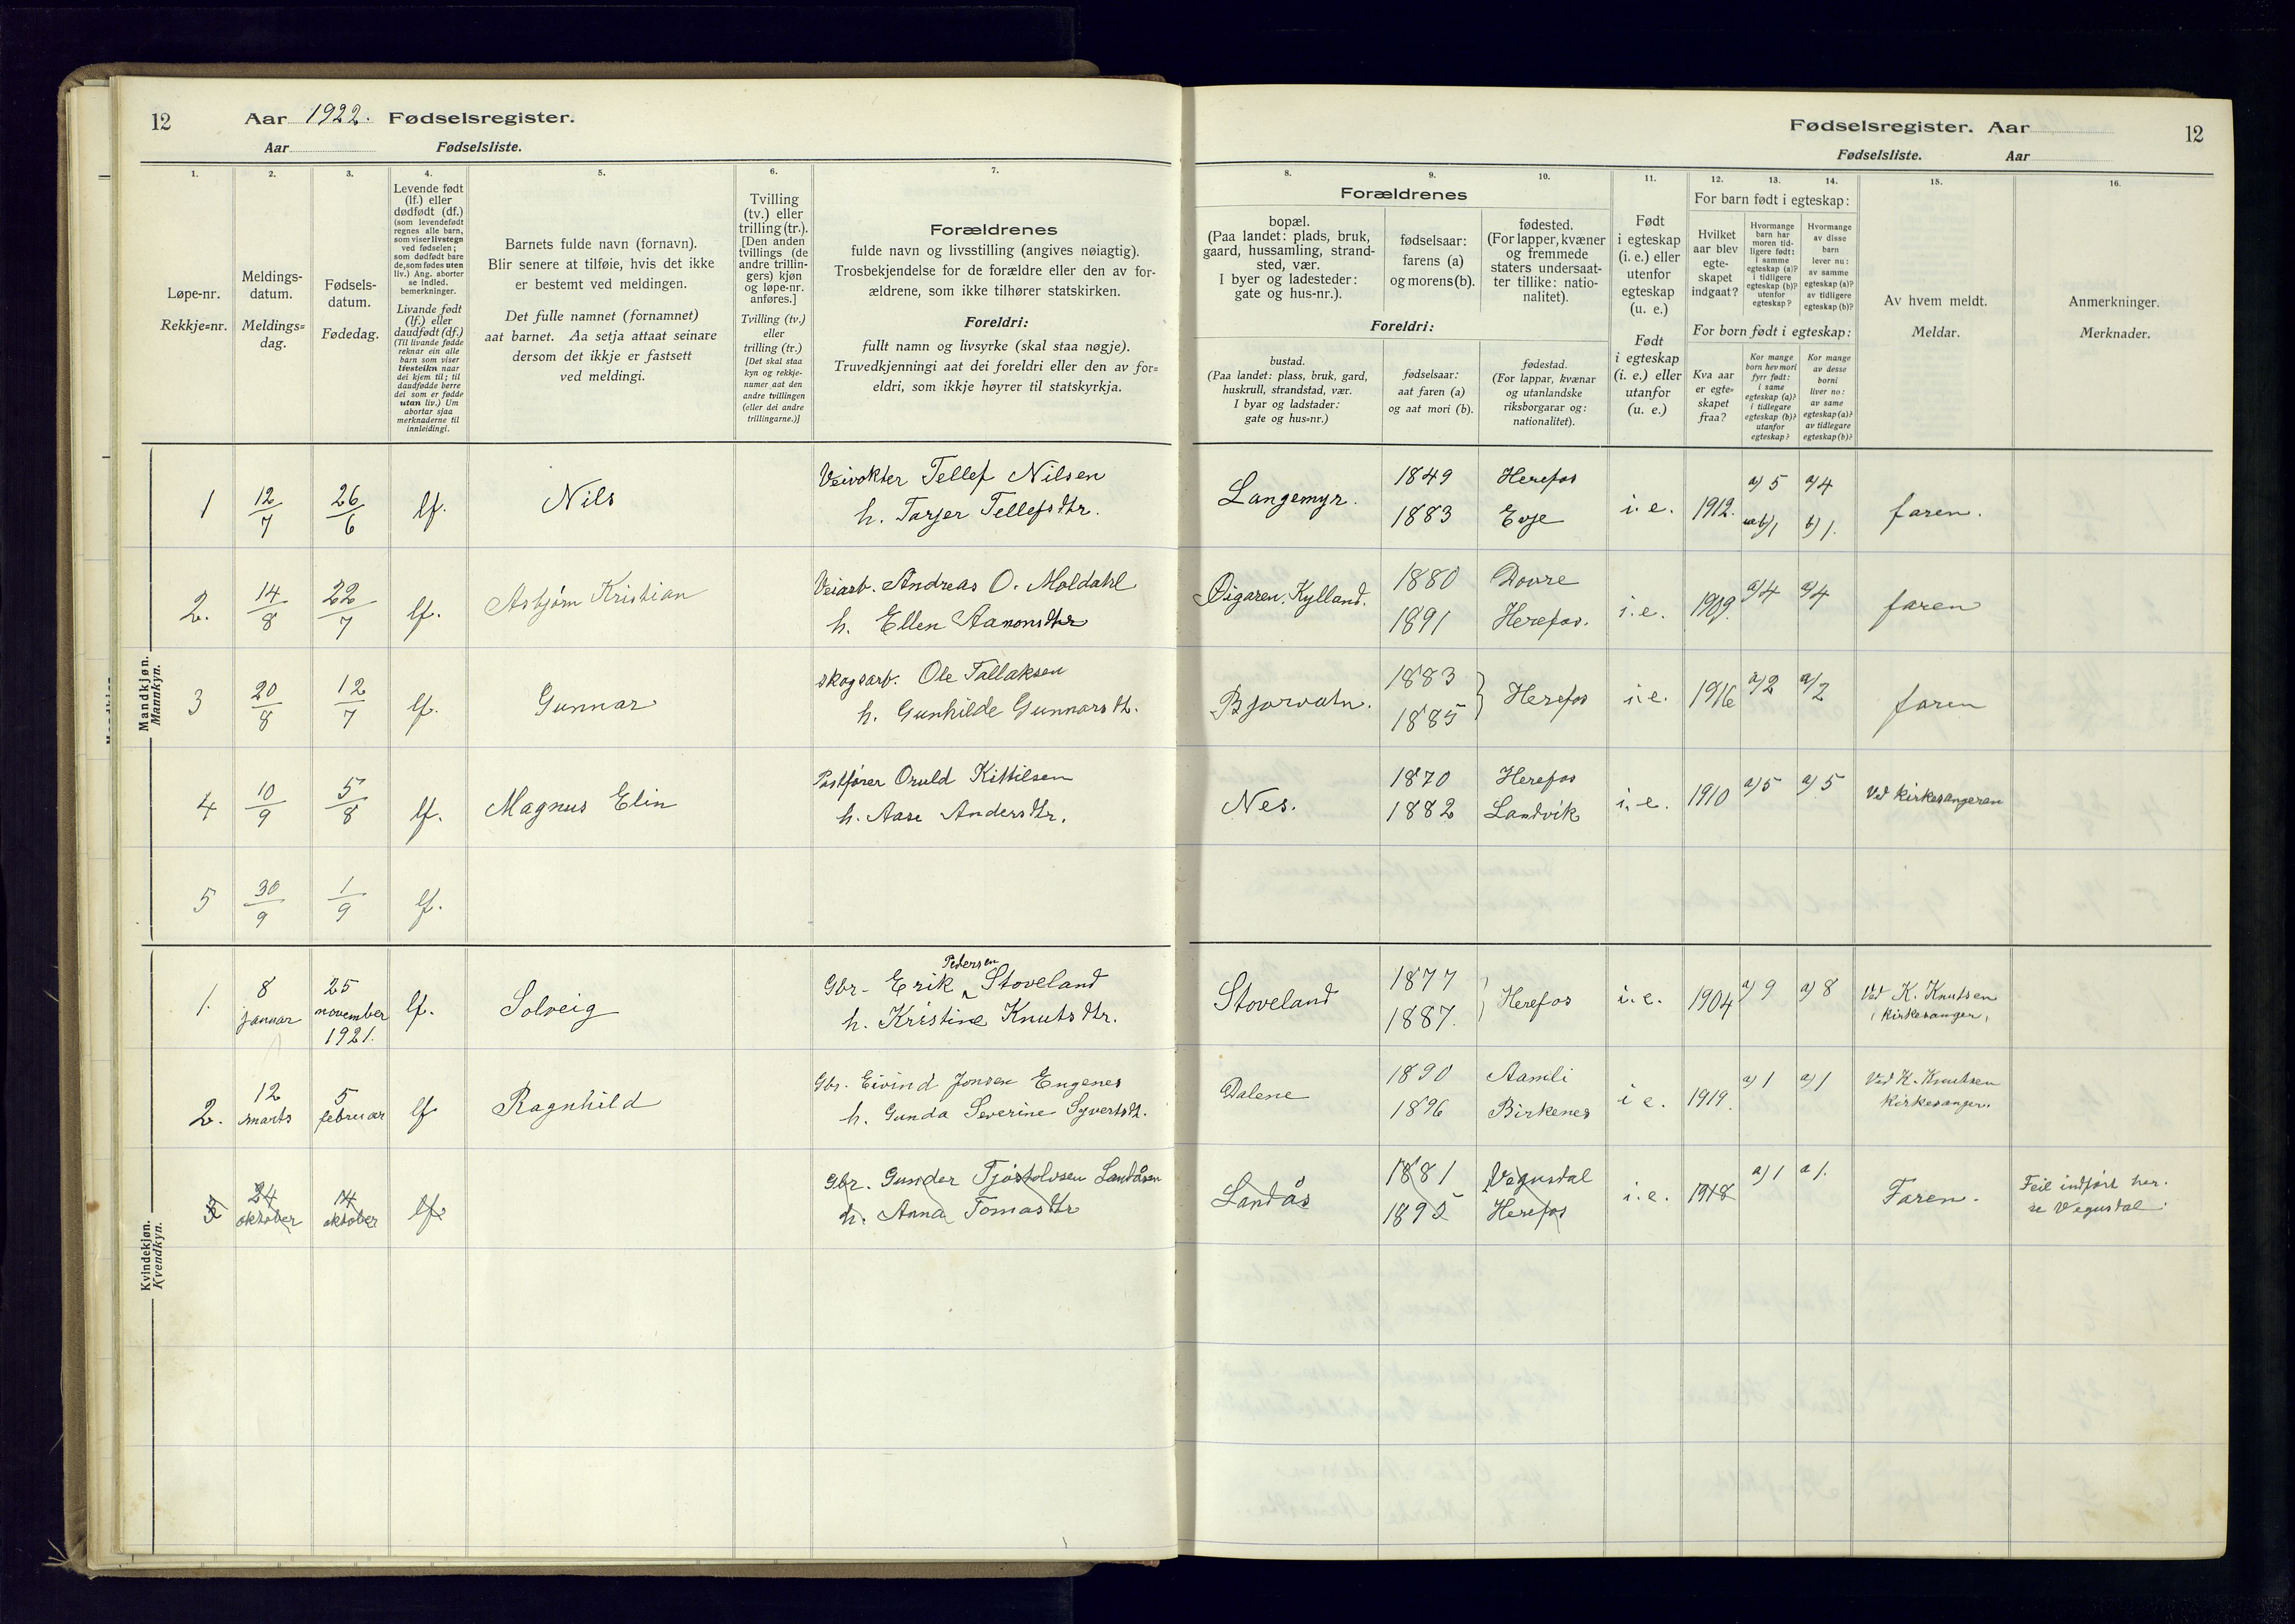 12
Aar 1922. Fødselsregister.
Aar Fødselsliste.
Fødselsregister. Aar
12
Fødselsliste. Aar
1.
Løpe-nr.
Rekkje=nr.
2.
Meldings-
datum.
Meldings=
dag.
3.
Fødsels-
datum.
Fødedag.
4.
Levende født
(lf.) eller
dødfødt (df.)
(som levendefødt
regnes alle barn,
som viser livstegn
ved fødselen;
som dødfødt bare
de, som fødes uten
liv.) Ang. aborter
se indled.
bemerkninger.
Livande født
(lf.) eller
daudfødt (df.)
(Til livande fødde
reknar ein alle
barn som viser
livsteikn naar
dei kjem til; til
daudfødde berre
dei som er fødde
utan liv.) Um
abortar sjaa
merknaderne til
innleidingi.
5.
Barnets fulde navn (fornavn).
Blir senere at tilføie, hvis det ikke
er bestemt ved meldingen.
Det fulle namnet (fornamnet)
aat barnet. Aa setja attaat seinare
dersom det ikkje er fastsett
ved meldingi.
6.
Tvilling
(tv.) eller
trilling (tr.).
[Den anden
tvillings (de
andre trillin-
gers) kjøn
og løpe-nr.
anføres.]
Tvilling (tv.)
eller
trilling (tr.)
[Det skal staa
kyn og rekkje-
numer aat den
andre tvillingen
(eller dei andre
trillingarne.)]
7.
Forældrenes
fulde navn og livsstilling (angives nøiagtig).
Trosbekjendelse for de forældre eller den av for-
ældrene, som ikke tilhører statskirken.
Foreldri:
fullt namn og livsyrke (skal staa nøgje).
Truvedkjenningi aat dei foreldri eller den av for=
eldri, som ikkje høyrer til statskyrkja.
8.
Forældrenes
bopæl.
(Paa landet: plads, bruk,
gaard, hussamling, strand-
sted, vær.
I byer og ladesteder:
gate og hus-nr.).
Foreldri:
bustad.
(Paa landet: plass, bruk, gard,
huskrull, strandstad, vær.
I byar og ladstader:
gate og hus=nr.)
9.
fødselsaar:
farens (a)
og morens (b).
fødselsaar:
aat faren (a)
og aat mori (b).
10.
fødested.
(For lapper, kvæner
og fremmede
staters undersaat-
ter tillike: natio-
nalitet).
fødestad.
(For lappar, kvænar
og utanlandske
riksborgarar og:
nationalitet).
11.
Født
i egteskap
(i. e.) eller
utenfor
egteskap
(u. e.)
Født
i egteskap
(i. e.) eller
utanfor
(u. e.)
12.
13.
14.
For barn født i egteskap:
Hvilket
aar blev
egte-
skapet
indgaat?
Hvormange
barn har
moren tid-
ligere født:
i samme
egteskap (a)?
i tidligere
egteskap (b)?
utenfor
egteskap?
Hvormange
av disse
barn
lever nu:
av samme
egteskap (a)?
av tidligere
egteskap (b)?
For born født i egteskap:
Kva aar
er egte=
skapet
fraa?
Kor mange
born hev mori
fyrr født:
i same
egteskap (a)?
i tidlegare
egteskap (b)?
utanfor
egteskap?
Kor mange
av desse
borni
liver no:
av same
egteskap (a)?
av tidlegare
egteskap (b)?
15.
Av hvem meldt.
Meldar.
16.
Anmerkninger.
Merknader.
Mandkjøn.
Mannkyn.
1 12/7 26/6 lf. Nils Veivokter Tellef Nilsen Langemyr. 1849 Herefos i. e. 1912. a) 5 a) 4 faren.
h. Tarjer Tellefsdtr. 1883 Evje b) 1 b) 1.
2. 14/8 22/7 lf. Asbjørn Kristian Veiarb. Andreas O. Moldahl Øigaren. Kylland. 1880 Dovre i. e. 1909. a) 4 a) 4 faren
h. Ellen Aanonsdtr 1891 Herefos.
3 20/8 12/7 lf. Gunnar skogsarb. Ole Tallaksen Bjorvatn. 1883 Herefos i. e. 1916 a) 2 a) 2 faren
h. Gunhilde Gunnarsdt. 1885
4 10/9 5/8 lf. Magnus Elin Postfører Oruld Kittilsen Nes. 1870 Herefos i. e. 1910 a) 5 a) 5 Ved kirkesangeren
h. Aase Andersdtr. 1882 Landvik
5 30/9 1/9 lf.
Kvindekjøn.
Kvendkyn.
1. 8 januar 25 november 1921. lf. Solveig Gbr. Erik Pedersen Stoveland Stoveland 1877 Herefos i. e. 1904 a) 9 a) 8 Ved K. Knutsen
h. Kristine Knutsdtr. 1887. kirkesanger.
2. 12 marts 5 februar lf Ragnhild Gbr. Eivind Jonsen Engenes Dalene 1890 Aamli i e. 1919. a) 1 a) 1 Ved K. Knutsen
h. Gunda Severine Syvertsdt. 1896 Birkenes kirkesanger.
3 24 oktober 14 oktober lf Gbr. Gunder Tjøstolvsen Landåsen Landås 1881 Vegusdal i. e. 1918 a) 1 a) 1. Faren. Feil indført her.
h. Anna Tomasdtr 1895 Herefos se Vegusdal.